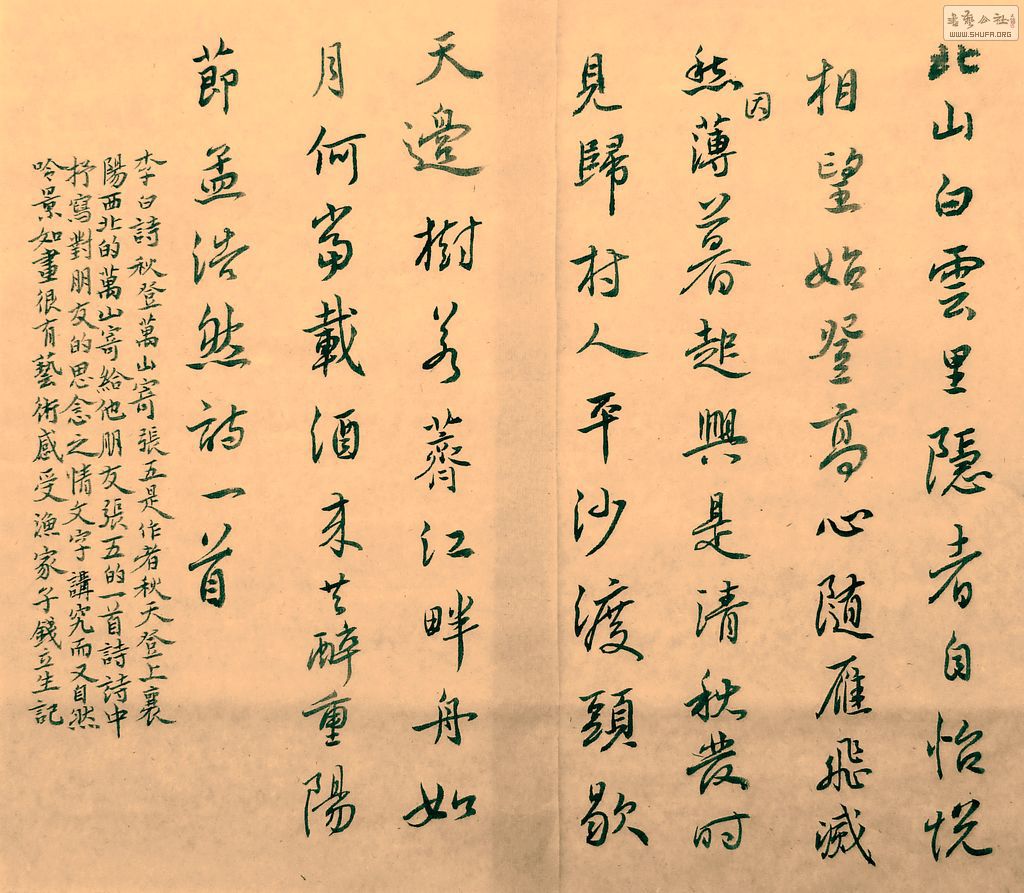 北山白雲里隱者自怡悦
相望始登高心隨雁飛滅
愁因薄暮起興是清秋發时
見歸村人平沙渡頭歇
天邊樹若薺江畔舟如
月何當載酒来共醉重陽
節孟浩然詩一首
李白詩秋登萬山寄張五是作者秋天登上襄
陽西北的萬山寄給他朋友張五的一首詩詩中
抒寫對朋友的思念之情文字講究而又自然
吟景如畫很有藝術感受漁家子錢立生記
書藝公社
WWW.SHUFA.ORG